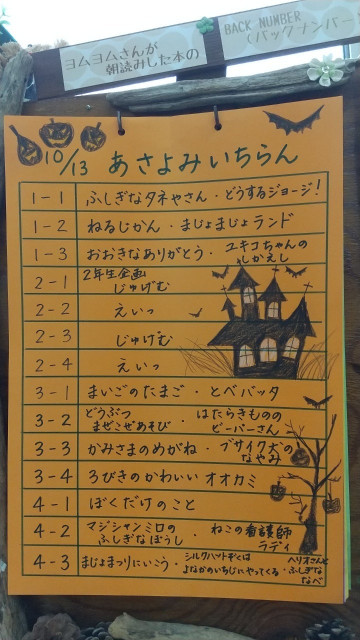 ヨムヨムさんが
朝読みした本の
BACK NUMBER
(バックナンバー
10/13 あさよみいちらん
1-1 ふしぎなタネやさん・どうするジョージ!
1-2 ねるじかん・まじょまじょランド
1-3 おおきなありがとう・ユキコちゃんのしかえし
2-1 2年生企画 じゅげむ
2-2 えいっ
2-3 じゅげむ
2-4 えいっ
3-1 まいごのたまご・とべバッタ
3-2 どうぶつまぜこぜあそび・はたらきもののビーバーさん
3-3 かみさまのめがね・ブサイク犬のなやみ
3-4 3びきのかわいいオオカミ
4-1 ぼくだけのこと
4-2 マジシャンミロのふしぎなぼうし・ねこの看護師ラディ
4-3 まじょまつりにいこう・シルクハットぞくはよなかのいちじにやってくる・ヘリオさんとふしぎななべ